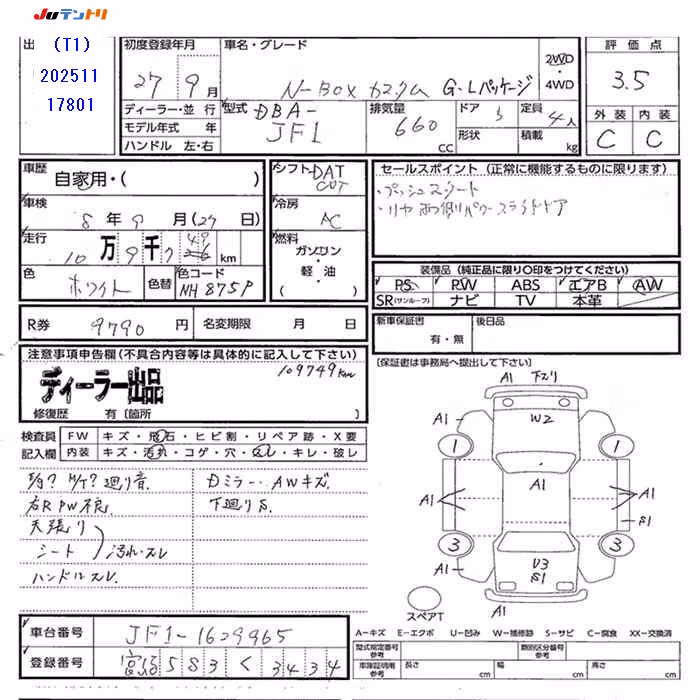 Juテントリ
出
(T1)
202511
17801
初度登録年月
27年9月
車名・グレード
N-BOX カスタム G・Lパッケージ
2WD
・
4WD
評価点
3.5
外装 内装
C C
ディーラー・並行
モデル年式 年
ハンドル 左・右
型式
DBA-
JF1
排気量
660
cc
ドア
5
形状
定員
4人
積載
kg
車歴
自家用・( )
車検
8年9月(27日)
走行
10万9千7 49 km
色
ホワイト
色替
色コード
NH875P
シフト DAT
CVT
冷房
AC
燃料
ガソリン
・
軽・油
( )
セールスポイント (正常に機能するものに限ります)
・プッシュスタート
・リヤ両側パワースライドドア
装備品 (純正品に限り〇印をつけてください)
PS PW ABS エアB AW
SR(サンルーフ) ナビ TV 本革
R券 9790円
名変期限 月 日
新車保証書
有・無
後日品
(保証書は事務局へ提出して下さい)
注意事項申告欄(不具合内容等は具体的に記入して下さい)
109749km
ディーラー出品
修復歴 有〔箇所 〕
検査員
記入欄
FW キズ・飛石・ヒビ割・リペア跡・X要
内装 キズ・汚れ・コゲ・穴・スレ・キレ・破レ
廻り音
右R PW不良
天張り
シート
汚れ・スレ
ハンドルスレ
Dミラー・AWキズ
下廻りS
A1 下ズリ
A1 W2 A1
1 1
A1
A1 A1
S1
3 3
A1 V3 A1
S1
スペアT
車台番号 JF1-1629965
登録番号 宮城583く3434
A-キズ E-エクボ U-凹み W-補修跡 S-サビ C-腐食 XX-交換済
型式指定番号
参考
類別区分番号
参考
車庫証明用
参考
長さ cm
幅 cm
高さ cm